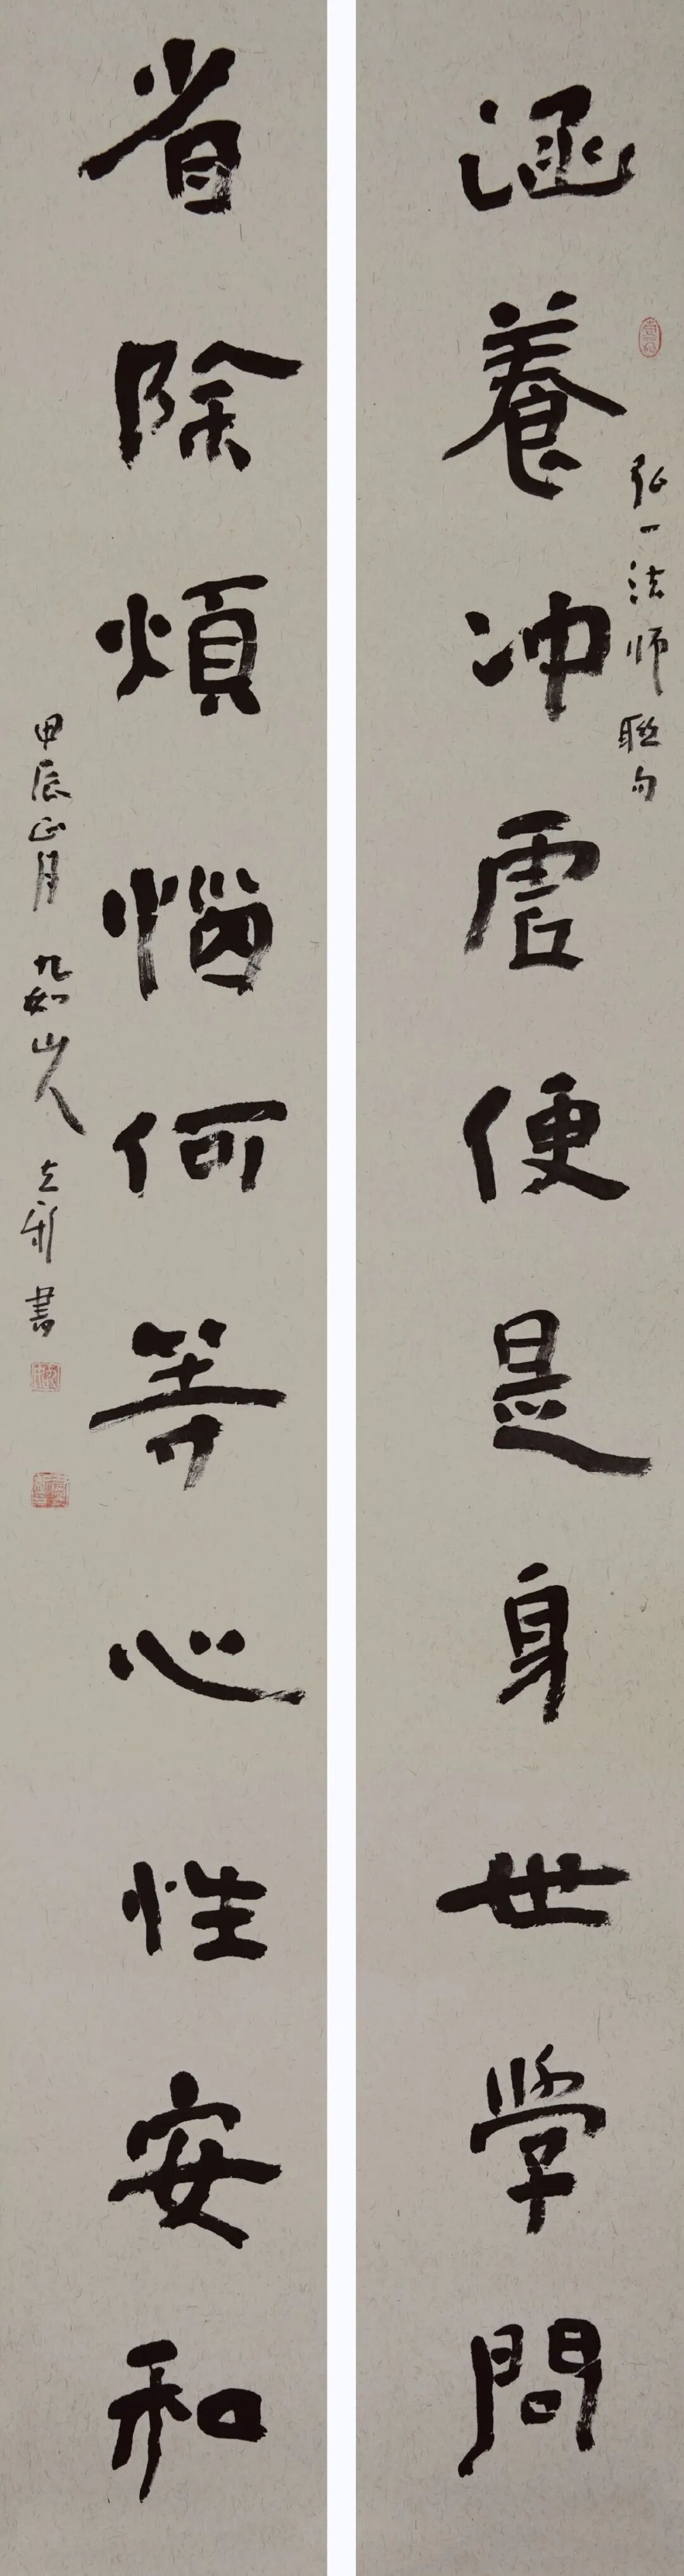 涵養冲虛便是身世学問
弘一法师聯句
省除煩惱何等心性安和
甲辰正月九如山人立新書